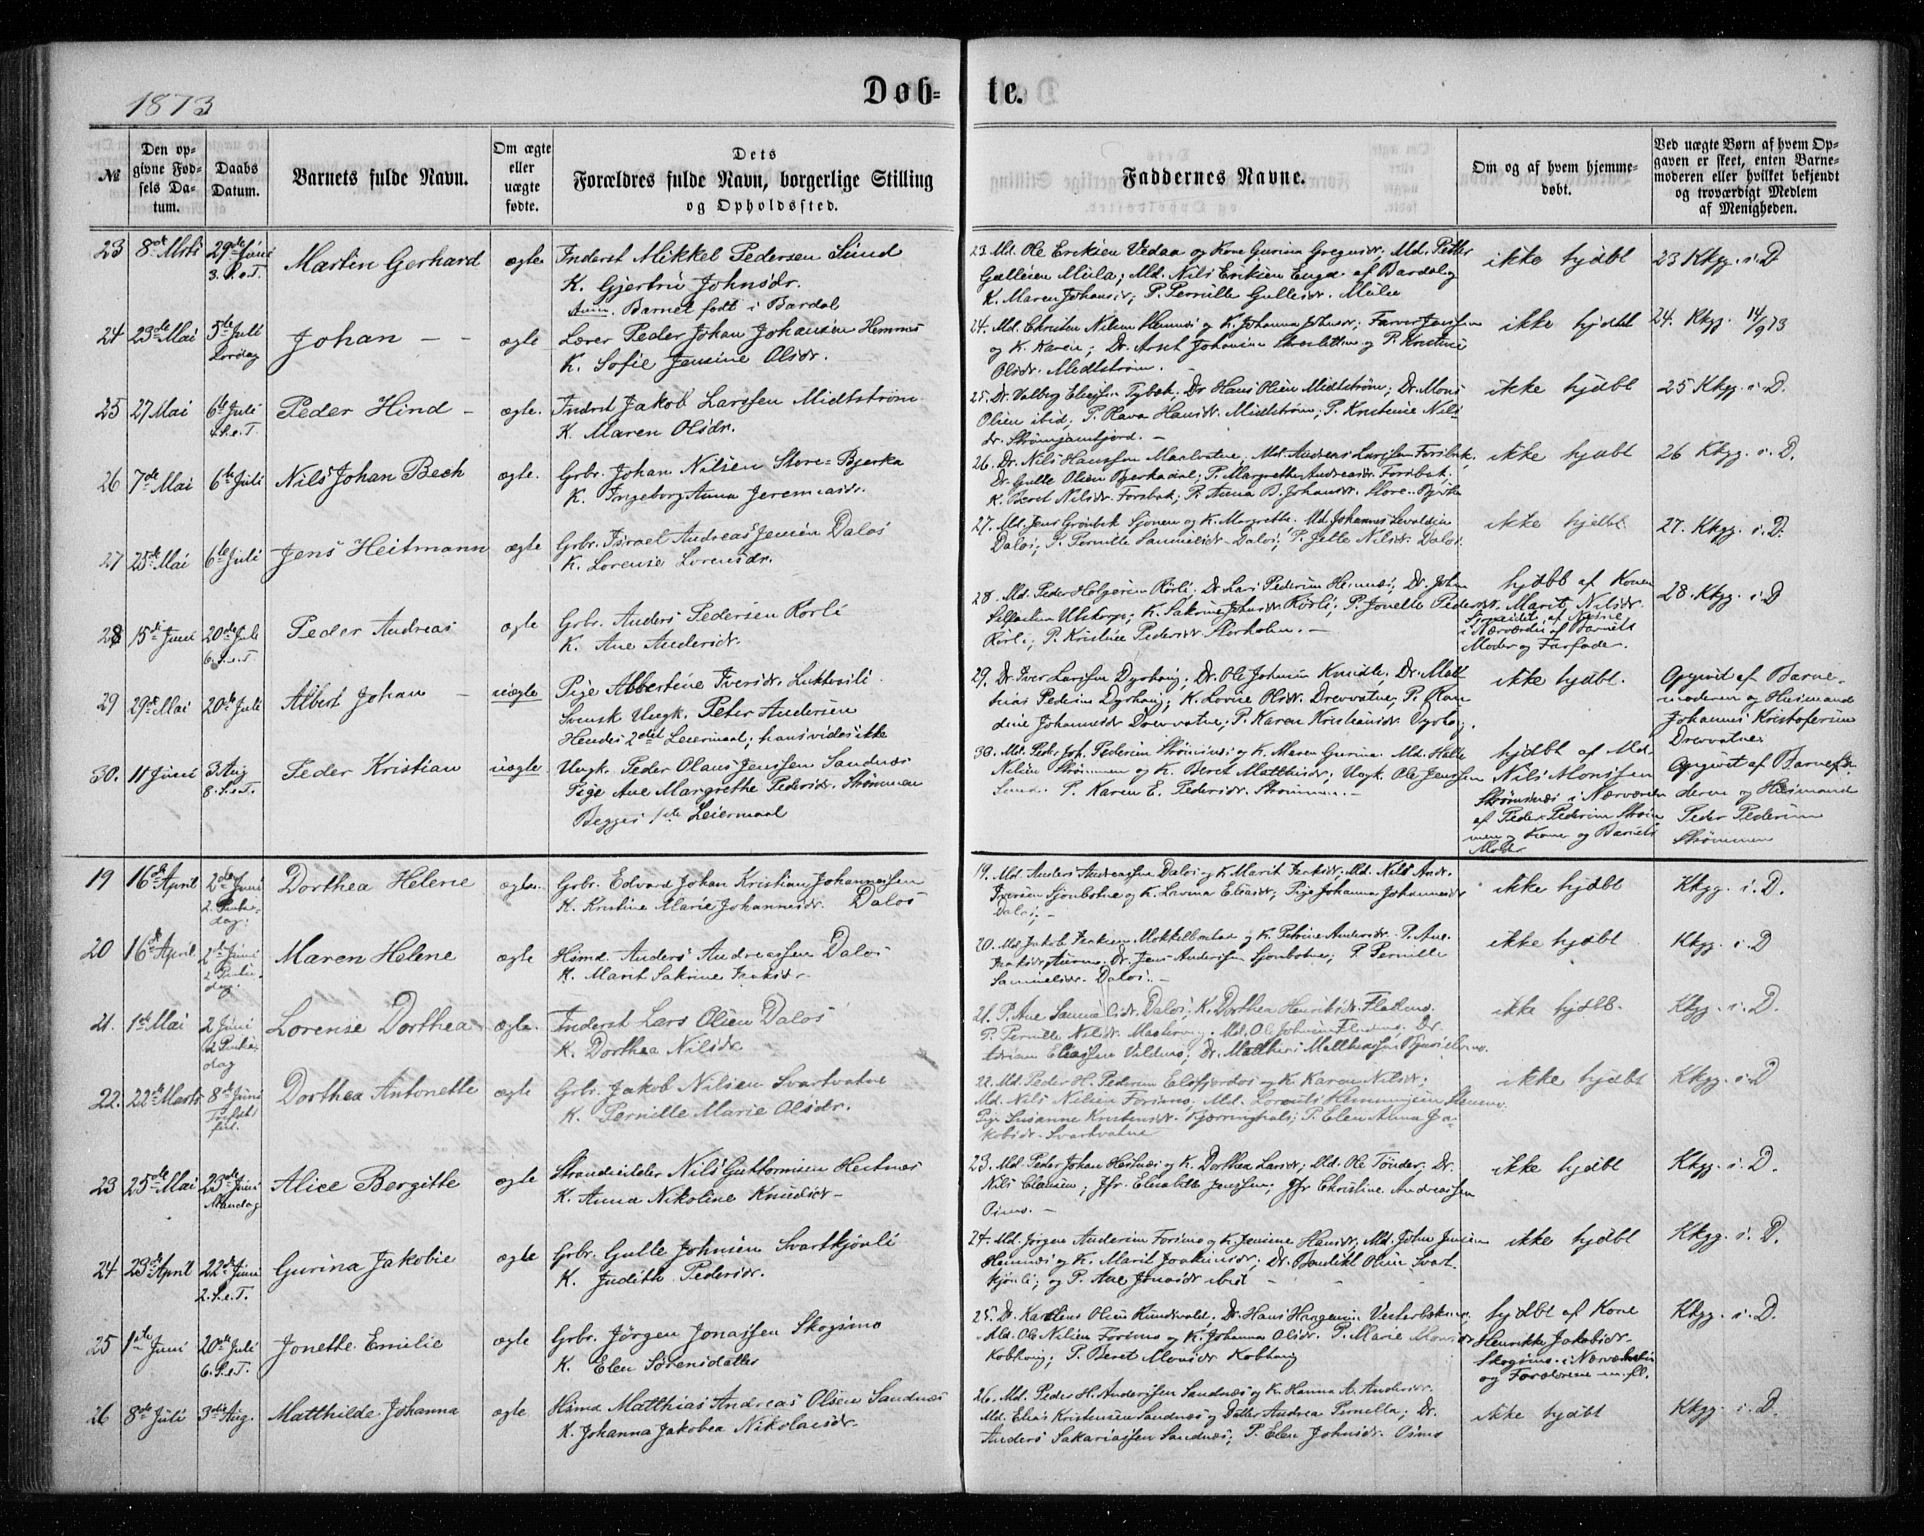 1873
Døb-
te.
№
Den opgivne Fødsels Datum.
Daabs Datum.
Barnets fulde Navn.
Om ægte eller uægte fødte.
Dets Forældres fulde Navn, borgerlige Stilling og Opholdssted.
Faddernes Navne.
Om og af hvem hjemmedøbt.
Ved uægte Børn af hvem Opgaven er skeet, enten Barnemoderen eller hvilket bekjendt og troværdigt Medlem af Menigheden.
23 8de Marts 29de Juni 3. S.e.T. Martin Gerhard ægte Inderst Mikkel Pedersen Sund
K. Gjertru Johnsdr.
Anm. Barnet født i Bardal
23. Md. Ole Eriksen Vedaa og Kone Gurina Gregusdr; Md. Petter
Gullesen Mula; Md. Nils Eriksen Enge af Bardal og
K. Maren Johansdr; P. Pernille Gullesdr. Mula
ikke hjdbt
23 Kkg. i. D
24 23de Mai 5te Juli Lørdag Johan ægte Lærer Peder Johan Johansen Hemnes
K. Sofie Jensine Olsdr.
24. Md. Christen Nilsen Hemnæs og K. Johanna Johnsdr; Farver Jenssen
og K. Karen; Dr. Arnt Johansen og P. Kristine
Olsdr. Midtstrøm.
ikke hjdbt
24. Kkg. 14/9 73
25 27 Mai 6te Juli 4. S.e.T. Peder Hind ægte. Indrst Jakob Larssen Midtstrøm
K. Maren Olsdr.
25. Dr. Valberg Eliassen Tybæk, Dr. Hans Olsen Midtstrøm; Dr. Mons
Olsen ibid; P. Olava Hansdr. Midtstrøm; P. Kristine Nils
dr. Strømjamfjord.
ikke hjdbt
25 Kkg. i D.
26 7de Mai 6te Juli Nils Johan Bech ægte. Grbr. Johan Nilsen Store-Bjerka
K. Ingeborg Anna Jeremiasdr.
26. Dr. Nils Hanssen Maalvatne. Md. Andreas Larssen Forsbæk,
Dr. Gulle Olsen Bjerkadal; P. Margrethe Andreasdr. Forsbak;
K. Beret Nilsdr. Forsbak; P. Anna B. Johansdr. Store-Bjerka
ikke hjdbt
26 Kkg. i. D.
27 25de Mai 6te Juli Jens Heitmann ægte Grbr. Israel Andreas Jensen Dalos
K. Lorense Lorensdr.
27. Md. Jens Grønbek Sjonen og K. Margrethe. Md. Johannes
Dalos; P. Pernille Samuelsdr. Dalos; P. Jette Nilsdr. Dalos.
ikke hjdbt.
27. Kkg. i. D.
28 15de Juni 20de Juli 6. S.e.T. Peder Andreas ægte Grbr. Anders Pedersen Rørli
K. Ane Andersdr.
28. Md. Peder Holgersen Rørli; Dr. Lars Pedersen Hemnæs; Dr. John
K. Sakrine Johnsdr Rørli; P. Jonette Pedersdr.
Rørli; P. Kristine Pedersdr.
hjdbt af Konen
Marit Nilsdr.
i Nærværelse af Barnets
Moder og Farfader.
28. Kkg. i D
29 29de Mai 20de Juli Albert Johan uægte Pige Albertine Iversdr. Luktesili
Svensk Ungk. Peter Andersen
Hendes 2det Leiermaal; hans vides ikke
29. Dr. Iver Larssen Dyrhaug; Dr. Ole Johnsen Knudli, Dr. Mat
hias Pedersen Dyrhaug; K. Lovise Olsdr. Drevvatne, P. Ran
dine Johannesdr Drevvatne; P. Karen Kristiansdr.
ikke hjdbt.
Opgivet af Barne-
moderen og Husmand
Johannes Kristofersen
Drevvatne
30. 11 Juni 3 Aug 8. S.e.T. Peder Kristian uægte Ungk. Peder Olaus Jenssen Sandnæs
Pige Ane Margrethe Pedersdr. Strømmen
Begges 1ste Leiermaal
30. Md. Pedr. Joh. Pedersen Strømsnæs og K. Maren Gurina. Md. Halte
Nilsen Strømmen og K. Beret Matthisdr; Ungk. Ole Jenssen
Sund. P. Karen E. Pedersdr. Strømmen.
hjdbt af Md.
Nils Monssen
Strømsnæs i Nærværelse
af Peder Pedersen Strøm
men og Kone og Barnets
Moder
Opgivet af Barnefa-
deren og Husmand
Peder Pedersen
Strømmen
19 16de April 2den Juni 2. Pintsedag. Dorthea Helene ægte. Grbr. Edvard Johan Kristian Johannessen
K. Kristine Marie Johannesdr. Dalos
19. Md. Anders Andreassen Dalos og K. Marit Isaksdr; Md. Nils Andr.
Iversen Sjonbotne og K. Lovina Eliasdr; Pige Johanna Johannesdr
Dalos;
ikke hjdbt
Kkg. i. D.
20 16de April 2de Juni 2 Pintsedag. Maren Helene ægte Hsmd Anders Andreassen Dalos
K. Marit Sakrine Isaksdr.
20. Md. Jakob Isaksen Mokkelbostad og K. Petrine Andersdr. P. Ane
Isaksdr. Dr. Jens Andersen Sjonbotne; P. Pernille
Samuelsdr. Dalos.
ikke hjdbt.
Kkg. i. D
21. 1ste Mai 2 Juni 2 Pintsedag Lorense Dorthea ægte. Inderst Lars Olsen Dalos
K. Dorthea Nilsdr
21. P. Ane Samuelsdr. Dalos; K. Dorthea Henriksdr. Flatmo.
P. Pernille Nilsdr. Md. Ole Johnsen Flatmo. Dr.
Adrian Eliassen Vildmo; Dr. Matthias Matthiassen
ikke hjdbt.
Kkg. i. D.
22. 22de Marts 8de Juni Trefolt. fest. Dorthea Antonette ægte Grbr Jakob Nilsen Svartvatne
K. Pernille Marie Olsdr.
22. Md. Peder H. Pedersen Elsfjordos og K. Karen Nilsdr;
Md. Nils Nilsen Forsmo; Md. Lorents Hemmingsen
Pige Susanne Kristensdr. Kjærringhals; P. Elen Anna Ja-
kobsdr. Svartvatne
ikke hjdbt
Kkg. i. D
23 25de Mai 23de Juni Mandag Alice Bergitte ægte Strandsidder Nils Guttormsen Hestnæs
K. Anna Nikoline Knudsdr
23. Md. Peder Johan Hestnæs og K. Dorthea Larsdr; Md. Ole Tønder, Dr.
Nils Clausen; Jfr. Elisabette Jenssen; Jfr Christine Andreassen
Osmo.
ikke hjdbt
Kkg. i. D.
24 23de April 22de Juni 2. S.e.T. Gurina Jakobie ægte Grbr. Gulle Johnsen Svartkjønli
K. Judith Pedersdr.
24. Md. Jørgen Andersen Forsmo og K. Jensine Hansdr; Md. John Jensen
Hemnæs og K. Marit Joakimsdr; Dr. Bendikt Olsen Svart
kjønli; og P. Ane Jonasdr ibid
ikke hjdbt
Kkg. i. D.
25 1ste Juni 20de Juli 6. S.e.T. Jonette Emilie ægte Grbr. Jørgen Jonassen Skogsmo
K. Elen Sørensdatter
25. D. Karolius Olsen Rundvald; Dr. Hans Hansen Vesterbækmo.
Md. Ole Nilsen Forsmo og K. Johanna Olsdr. P. Marie Monsdr
Kobhaug; P. Beret Monsdr Kobhaug
hjdbt af Kone
Henrikke Jakobsdr.
Skogsmo i Nærværelse
og Forældrene m. fl.
Kkg. i. D.
26 8de Juli 3die Aug. Matthilde Johanna ægte Hsmd Matthias Andreas Olsen Sandnæs
K. Johanna Jakobea Nikolaisdr.
26. Md. Peder H. Anderssen Sandnæs og K. Hanna A. Andersdr.
Md. Elias Kristensen Sandnæs og Datter Andrea Pernella; Dr.
Anders Sakariassen Sandnæs; P. Elen Johnsdr. Osmo
ikke hjdbt
Kkg. i. D.